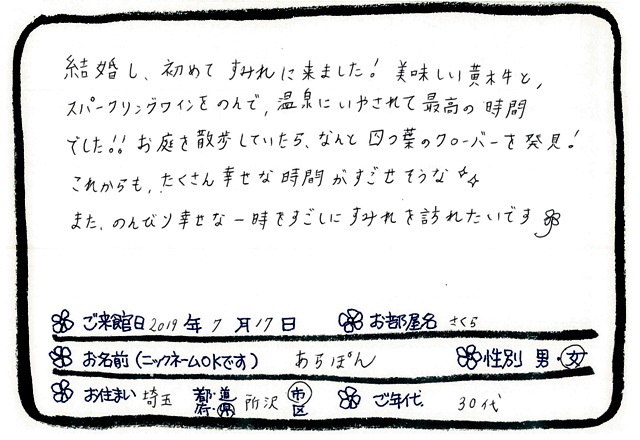 結婚し、初めて すみれに来ました! 美味しい黄木牛と、
スパークリングワインをのんで、温泉にいやされて最高の時間
でした!! お庭を散歩していたら、なんと四つ葉のクローバーを発見!
これからも、たくさん幸せな時間がすごせそうな
また、のんびり幸せな一時をすごしにすみれを訪れたいです
ご来館日 2019 年 7 月 17 日 お部屋名 さくら
お名前(ニックネームOKです) あらぽん 性別 男・女
お住まい 埼玉 都・道・府・県 所沢 市 区 ご年代 30代